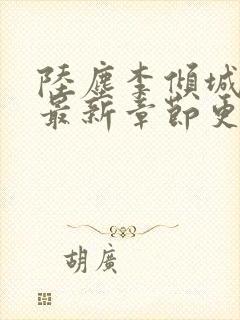 陸塵李傾城
最新章節更
胡廣